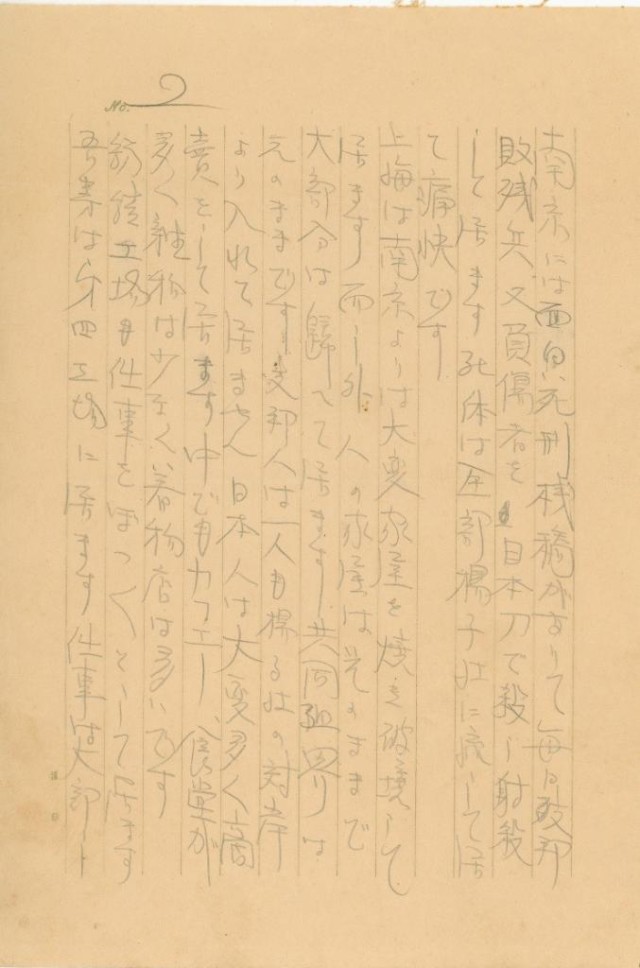 No. 2
南京には面白死刑桟橋がありて毎日支那
敗残兵又負傷者を日本刀で殺し射殺
して居ます死体は全部揚子江に流して居
て痛快です
上海は南京よりは大変家屋を焼き破壊して
居ます而し外人の家屋は元のままで
大部分は帰へて居ます共同租界は
元のままです支那人は一人も揚る江の対岸
より入れて居ません日本人は大変多く商
売をして居ます中でもカフエー、食堂が
多く雑物は少なく着物店は多いです
紡績工場も仕事をぼつ〱として居ます
吾等は第四工場に居ます仕事は大部